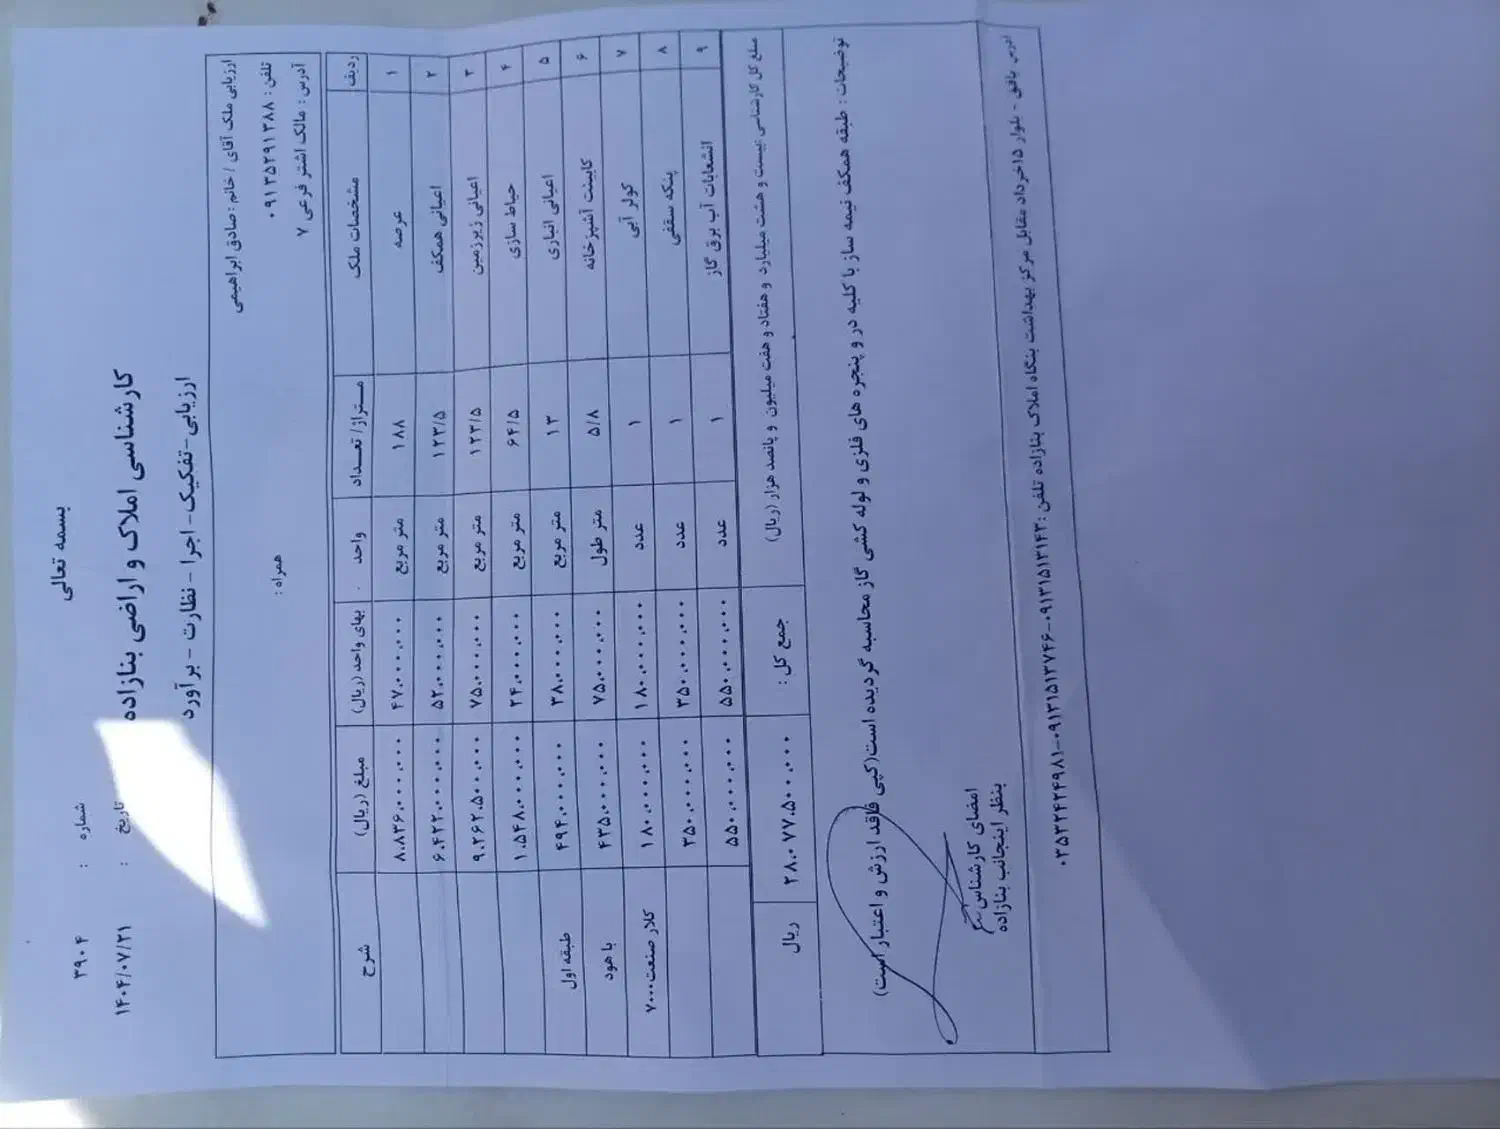 بسمه تعالی
کارشناسی املاک و اراضی بنازاده
ارزیابی -تفکیک- اجرا - نظارت - برآورد
شماره : ۳۹۰۴
تاریخ : ۱۴۰۴/۰۷/۲۱
ارزیابی ملک آقای / خانم : صادق ابراهیمی
تلفن : ۰۹۱۳۵۲۹۱۳۸۸ همراه :
آدرس : مالک اشتر فرعی ۷
ردیف مشخصات ملک متراژ/ تعداد واحد بهای واحد (ریال) مبلغ (ریال) شرح
۱ عرصه ۱۸۸ متر مربع ۴۷.۰۰۰.۰۰۰ ۸.۸۳۶.۰۰۰.۰۰۰
۲ اعیانی همکف ۱۲۳/۵ متر مربع ۵۲.۰۰۰.۰۰۰ ۶.۴۲۲.۰۰۰.۰۰۰
۳ اعیانی زیرزمین ۱۲۳/۵ متر مربع ۷۵.۰۰۰.۰۰۰ ۹.۲۶۲.۵۰۰.۰۰۰
۴ حیاط سازی ۶۴/۵ متر مربع ۲۴.۰۰۰.۰۰۰ ۱.۵۴۸.۰۰۰.۰۰۰
۵ اعیانی انباری ۱۳ متر مربع ۳۸.۰۰۰.۰۰۰ ۴۹۴.۰۰۰.۰۰۰ طبقه اول
۶ کابینت آشپزخانه ۵/۸ متر طول ۷۵.۰۰۰.۰۰۰ ۴۳۵.۰۰۰.۰۰۰ با هود
۷ کولر آبی ۱ عدد ۱۸۰.۰۰۰.۰۰۰ ۱۸۰.۰۰۰.۰۰۰ کلار صنعت۷۰۰۰
۸ پنکه سقفی ۱ عدد ۳۵۰.۰۰۰.۰۰۰ ۳۵۰.۰۰۰.۰۰۰
۹ انشعابات آب برق گاز ۱ عدد ۵۵۰.۰۰۰.۰۰۰ ۵۵۰.۰۰۰.۰۰۰
مبلغ کل کارشناسی :بیست و هشت میلیارد و هفتاد و هفت میلیون و پانصد هزار (ریال) جمع کل : ۲۸.۰۷۷.۵۰۰.۰۰۰ ریال
توضیحات : طبقه همکف نیمه ساز با کلیه در و پنجره های فلزی و لوله کشی گاز محاسبه گردیده است(کپی فاقد ارزش و اعتبار است)
امضای کارشناس
بنظر اینجانب بنازاده
آدرس بافق - بلوار ۱۵خرداد مقابل مرکز بهداشت بنگاه املاک بنازاده تلفن :۰۹۱۳۱۵۱۳۱۴۳-۰۹۱۳۱۵۱۳۷۴۶-۰۳۵۳۲۴۲۴۹۸۱